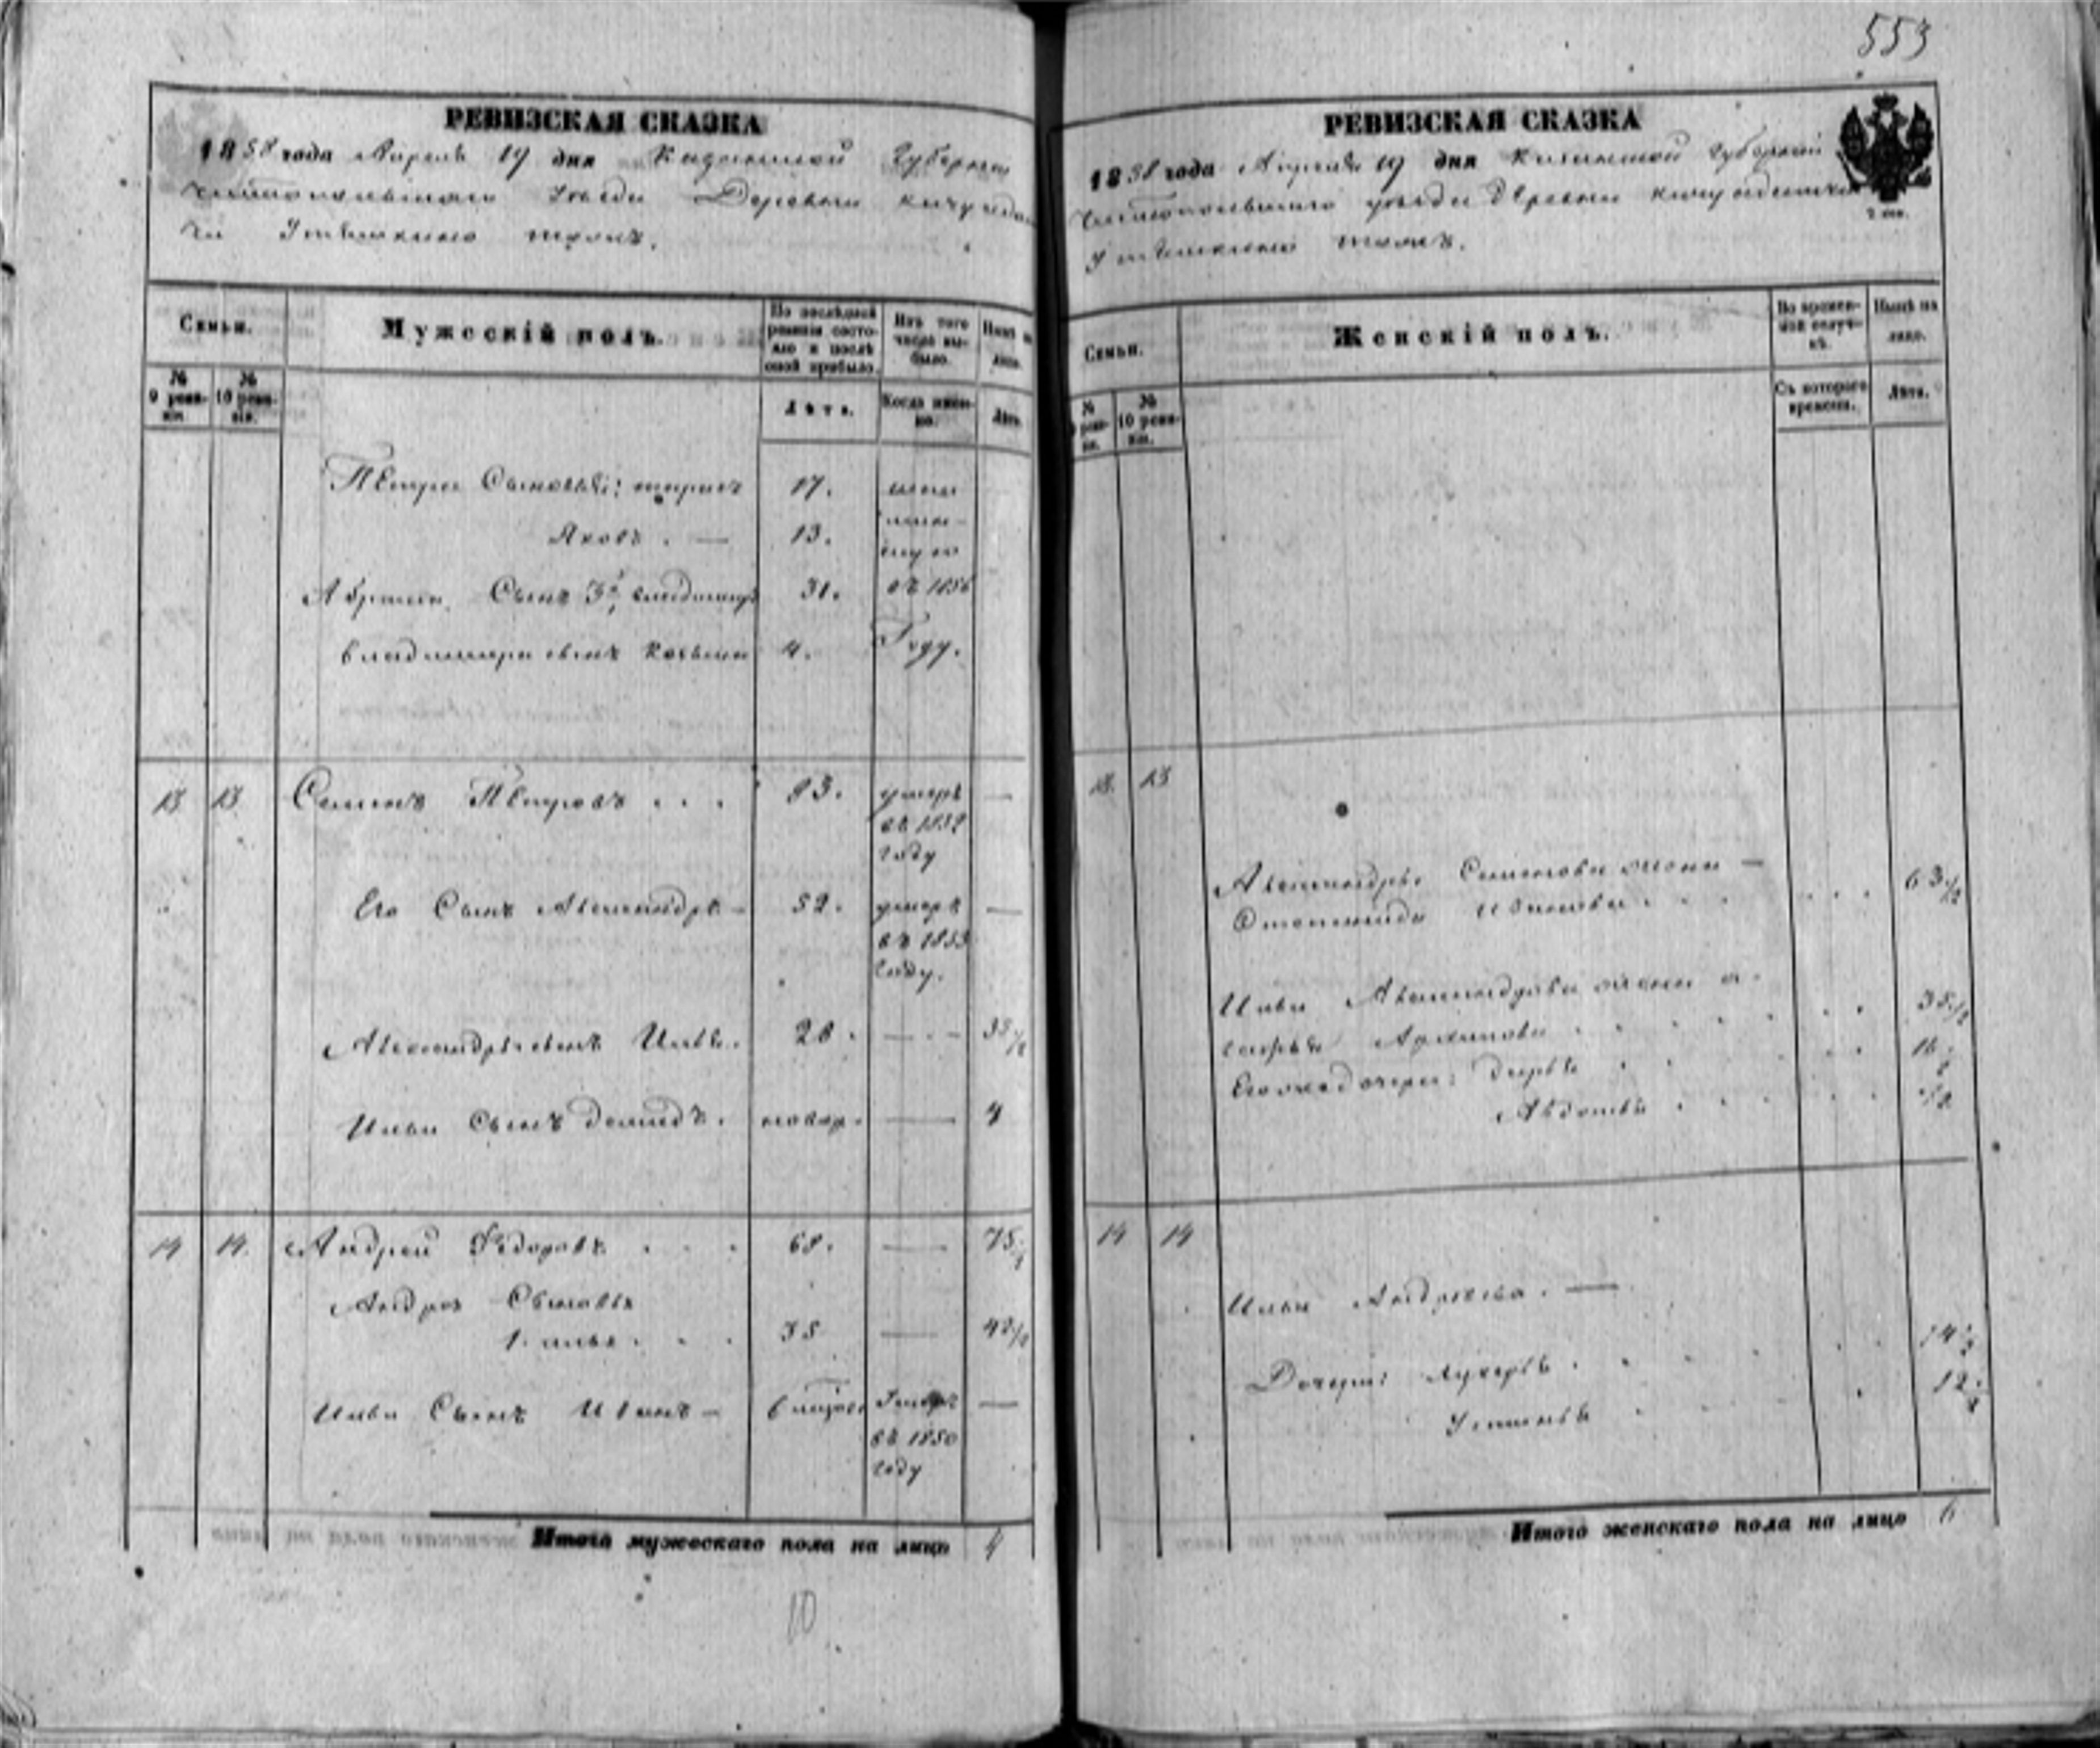 553
РЕВИЗСКАЯ СКАЗКА
1858 года Апреля 19 дня Казанской Губернии
Чистопольскаго Уезда Деревни
тожъ.
Семьи.
Мужескій полъ.
По послѣдней ревизіи состояло и послѣ оной прибыло.
Изъ того числа выбыло.
Нынѣ на лицо.
№ 9 ревизіи.
№ 10 ревизіи.
Лѣта.
Когда именно.
Лѣта.
Петра Сыновья: 17.
Яковъ . — 13.
Сынъ 3й Владимиръ 31. въ 1856
Владимира сынъ 4. Году.
13 13 Семенъ Петровъ . . . 83. умеръ —
въ 1852
году
Его Сынъ Александръ — 52. умеръ —
въ 1853
году.
Александра сынъ Илья. 28. — 35 1/2
Ильи Сынъ Демидъ. новор. — 4
14 14. Андрей Федоровъ . . . 68. — 75 1/2
Андрея Сыновья
1. Илья . . . 35 — 42 1/2
Ильи Сынъ Иванъ — Умеръ —
въ 1850
году
Итого мужескаго пола на лицо 4
10
РЕВИЗСКАЯ СКАЗКА
1858 года Апреля 19 дня Казанской Губернии
Чистопольскаго уезда Деревни
тожъ.
Семьи.
Женскій полъ.
Во временной отлучкѣ.
Нынѣ на лицо.
№ 9 ревизіи.
№ 10 ревизіи.
Съ котораго времени.
Лѣта.
13. 13
Александра Семенова жена —
Ивановна . . . 63 1/2
Ильи Александрова жена
Архипова . . . 35 1/2
Его же дочери: Дарья . . 16
Авдотья . . . 1/2
14 14
Ильи Андреева. —
Дочери: Лукерья . . . 14 1/2
Устинья . . 12
Итого женскаго пола на лицо 6